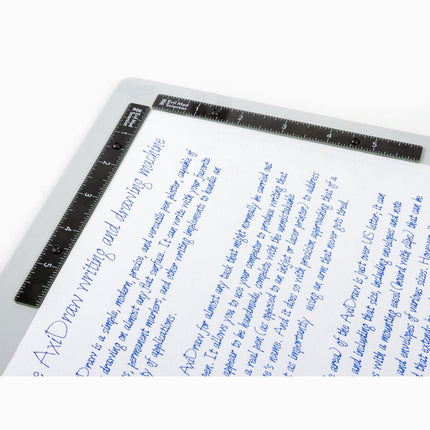 Evil Mad
Scientist
1 2 3 4 5
Evil Mad
Scientist
1 2 3 4 5
AxiDraw writing and drawing machine
Draw is a simple, modern, precise, and versatile pen plotter capable of
drawing on almost any flat surface. It can write with your favorite
permanent markers, and other writing implements to handle an
of applications.
AxiDraw for almost any task that might normally be carried out
It allows you to use your computer to produce writing that
appear to be handmade, complete with the unmistakable
a real pen (as opposed to an inkjet or laser printer) to address
name. And it does so with precision approaching that of a
using an arm that never gets tired.
area) of the AxiDraw is just over US letter, it can
and including that size including envelopes and note
with a mounting easel (board with clips) that can be
and envelopes of various sizes.
that